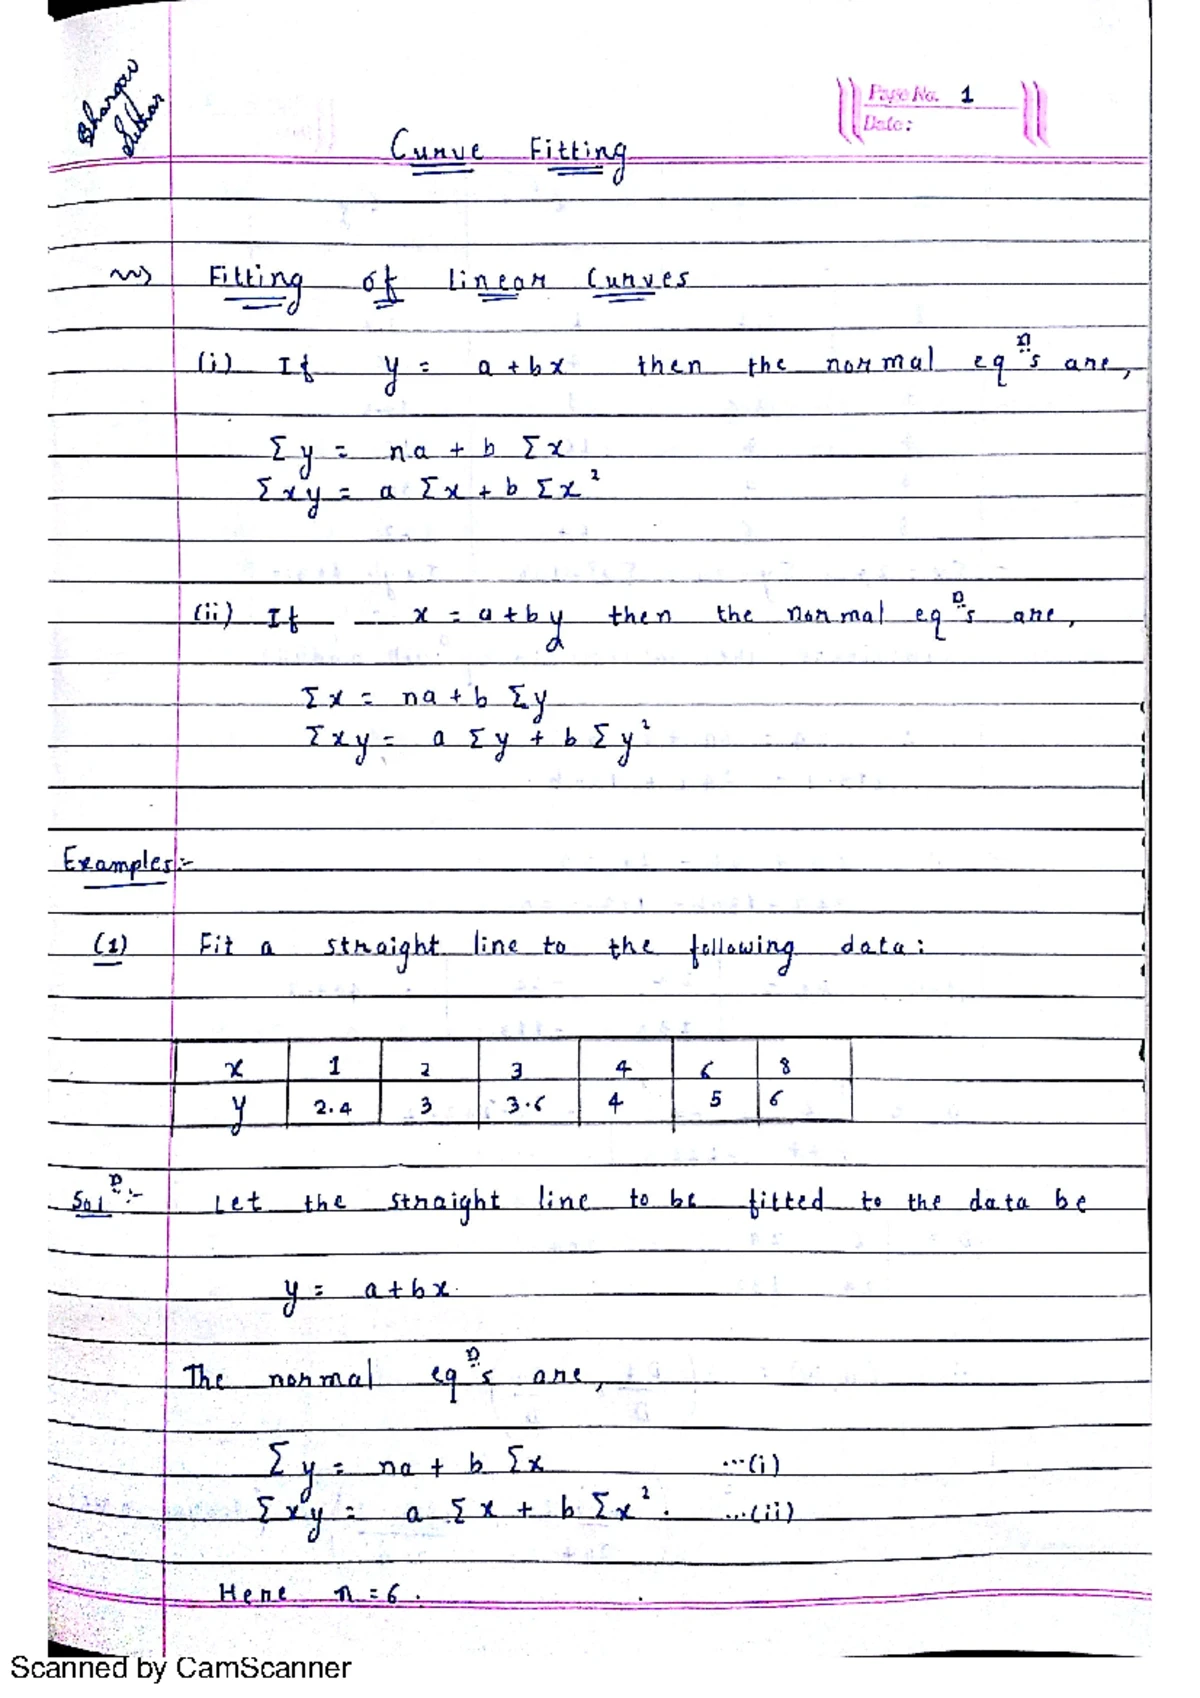 Bhargav
Suthar
Page No. 1
Date:
Curve Fitting
Fitting of Linear Curves
(i) If y = a + bx then the normal eqⁿs are,
Σy = na + b Σx
Σxy = a Σx + b Σx²
(ii) If x = a + by then the normal eqⁿs are,
Σx = na + b Σy
Σxy = a Σy + b Σy²
Examples:-
(1) Fit a straight line to the following data:
x 1 2 3 4 6 8
y 2.4 3 3.6 4 5 6
Solⁿ:- Let the straight line to be fitted to the data be
y = a + bx.
The normal eqⁿs are,
Σy = na + b Σx ...(i)
Σxy = a Σx + b Σx². ...(ii)
Here n = 6.
Scanned by CamScanner